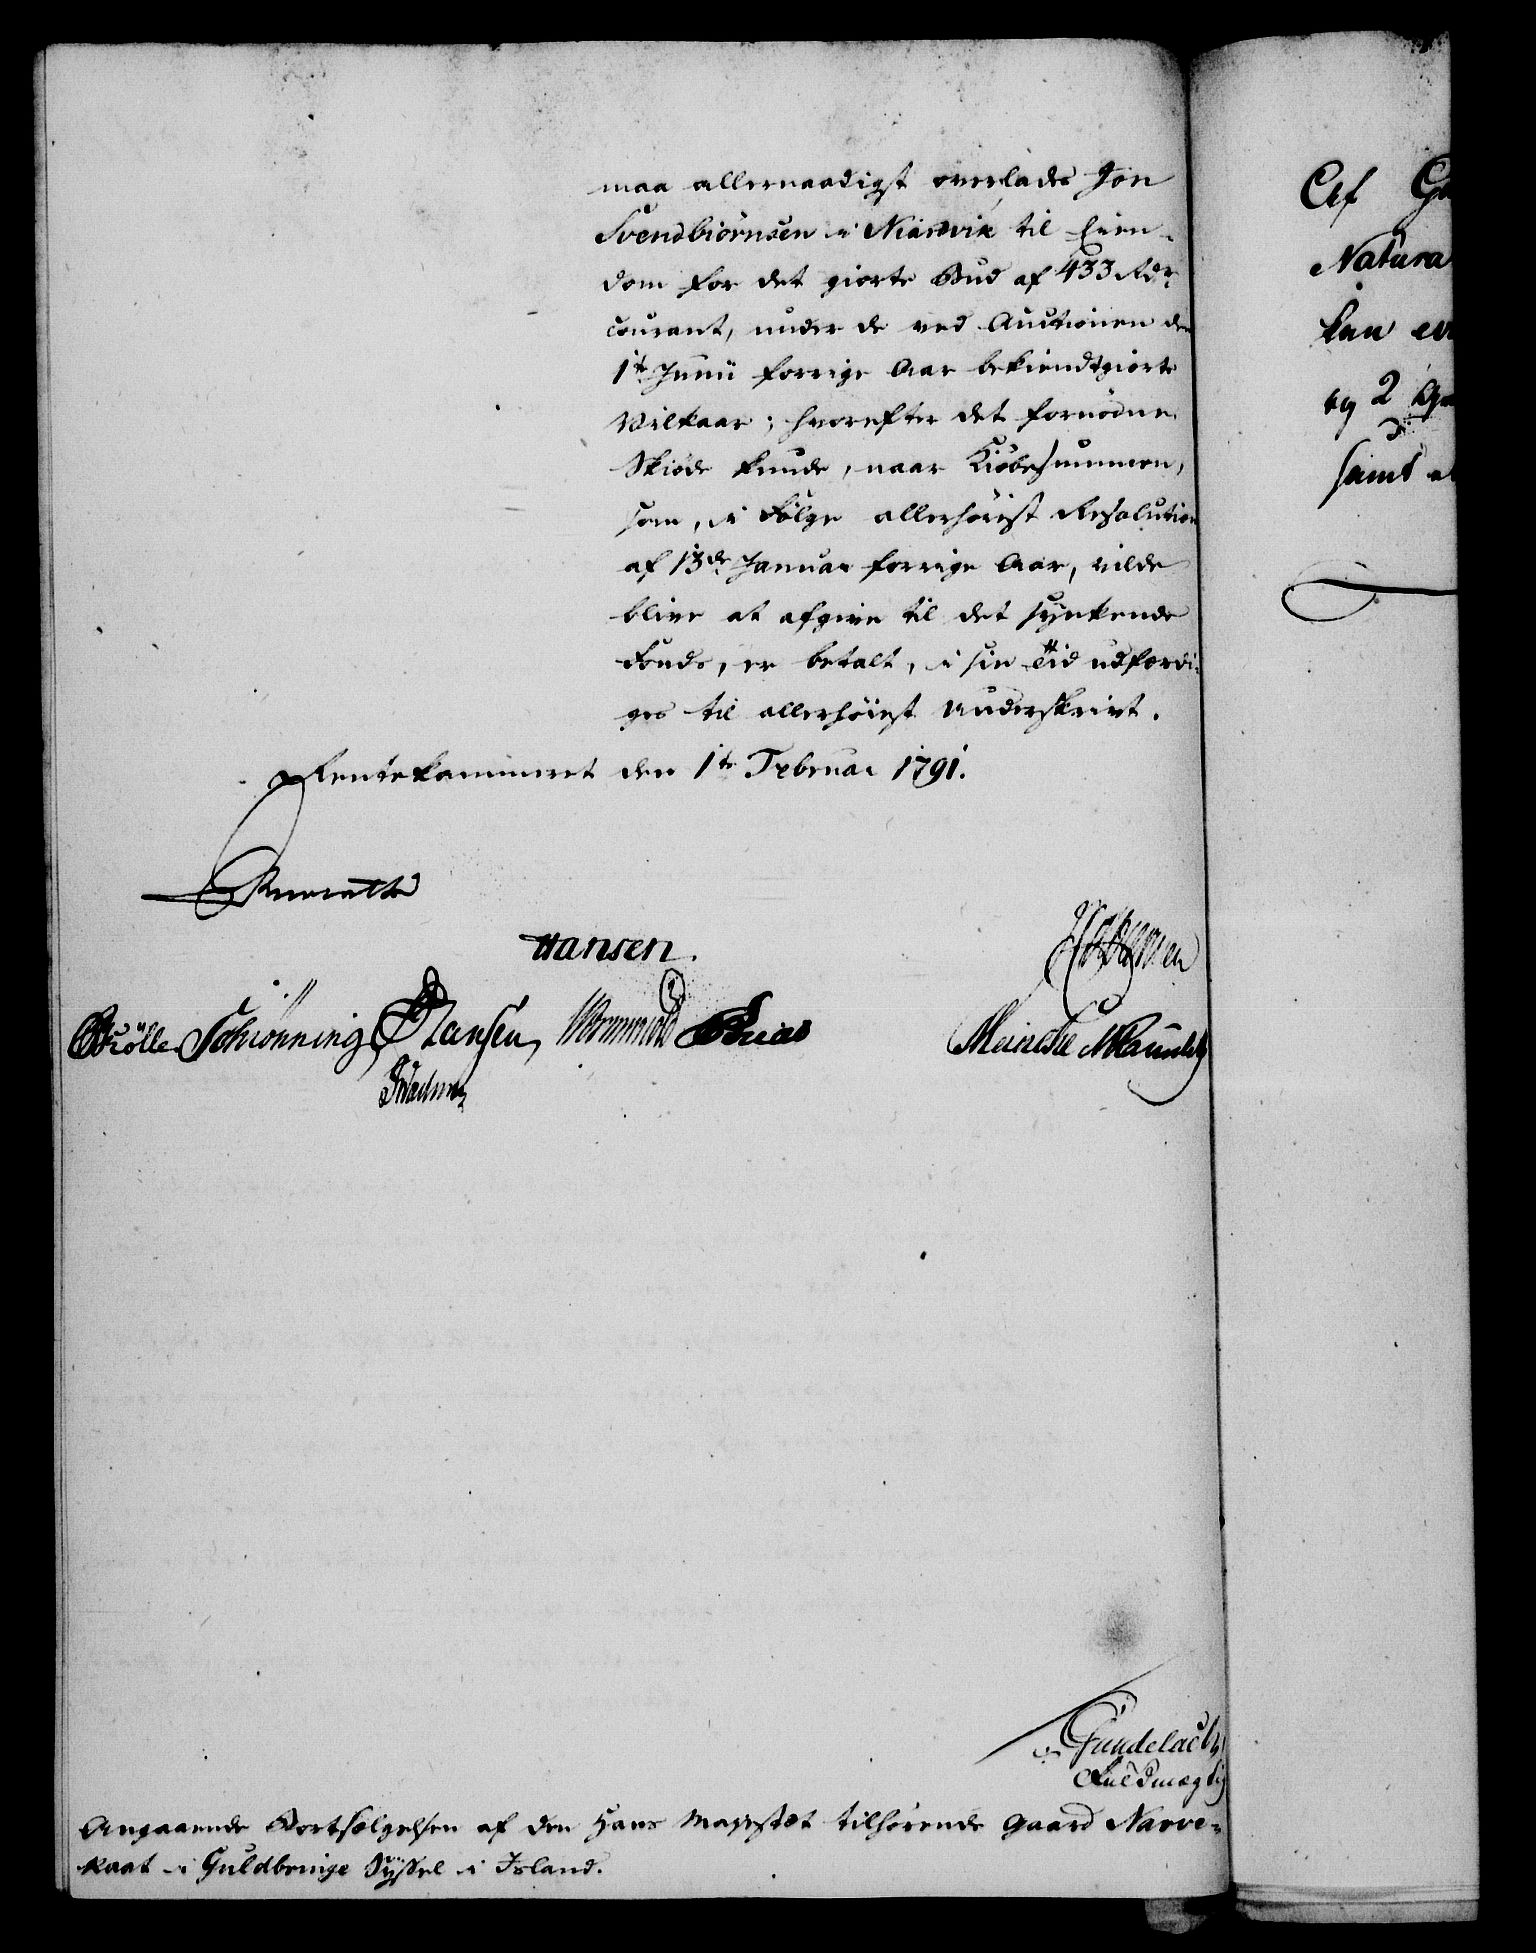 maa allernaadigst overlades Jon
Svendbiörnsen i Niarvik til Eien-
dom for det giorte Bud af 433 Rdr
courant, under de ved Auctionen den
1te Junii forrige Aar bekiendtgiorte
Vilkaar; hvorefter det fornödne
Skiöde kunde, naar Kiöbesummen,
som, i Fölge allerhöiest Resolution
af 13de Januar forrige Aar, vilde
blive at afgive til det synkende
Fonds, er betalt, i sin Tid udfærdi-
ges til allerhöiest Underskrivt.
Rentekammeret den 1te Februar 1791.
Hansen.
Schiönning Hansen, Wormskiold
Meincke
Gundelach,
Fuldmægtig
Angaaende Bortsælgelsen af den Hans Majestæt tilhörende Gaard Narve-
kaat i Guldbringe Syssel i Island.
Af
Natura
kan
og 2
samt